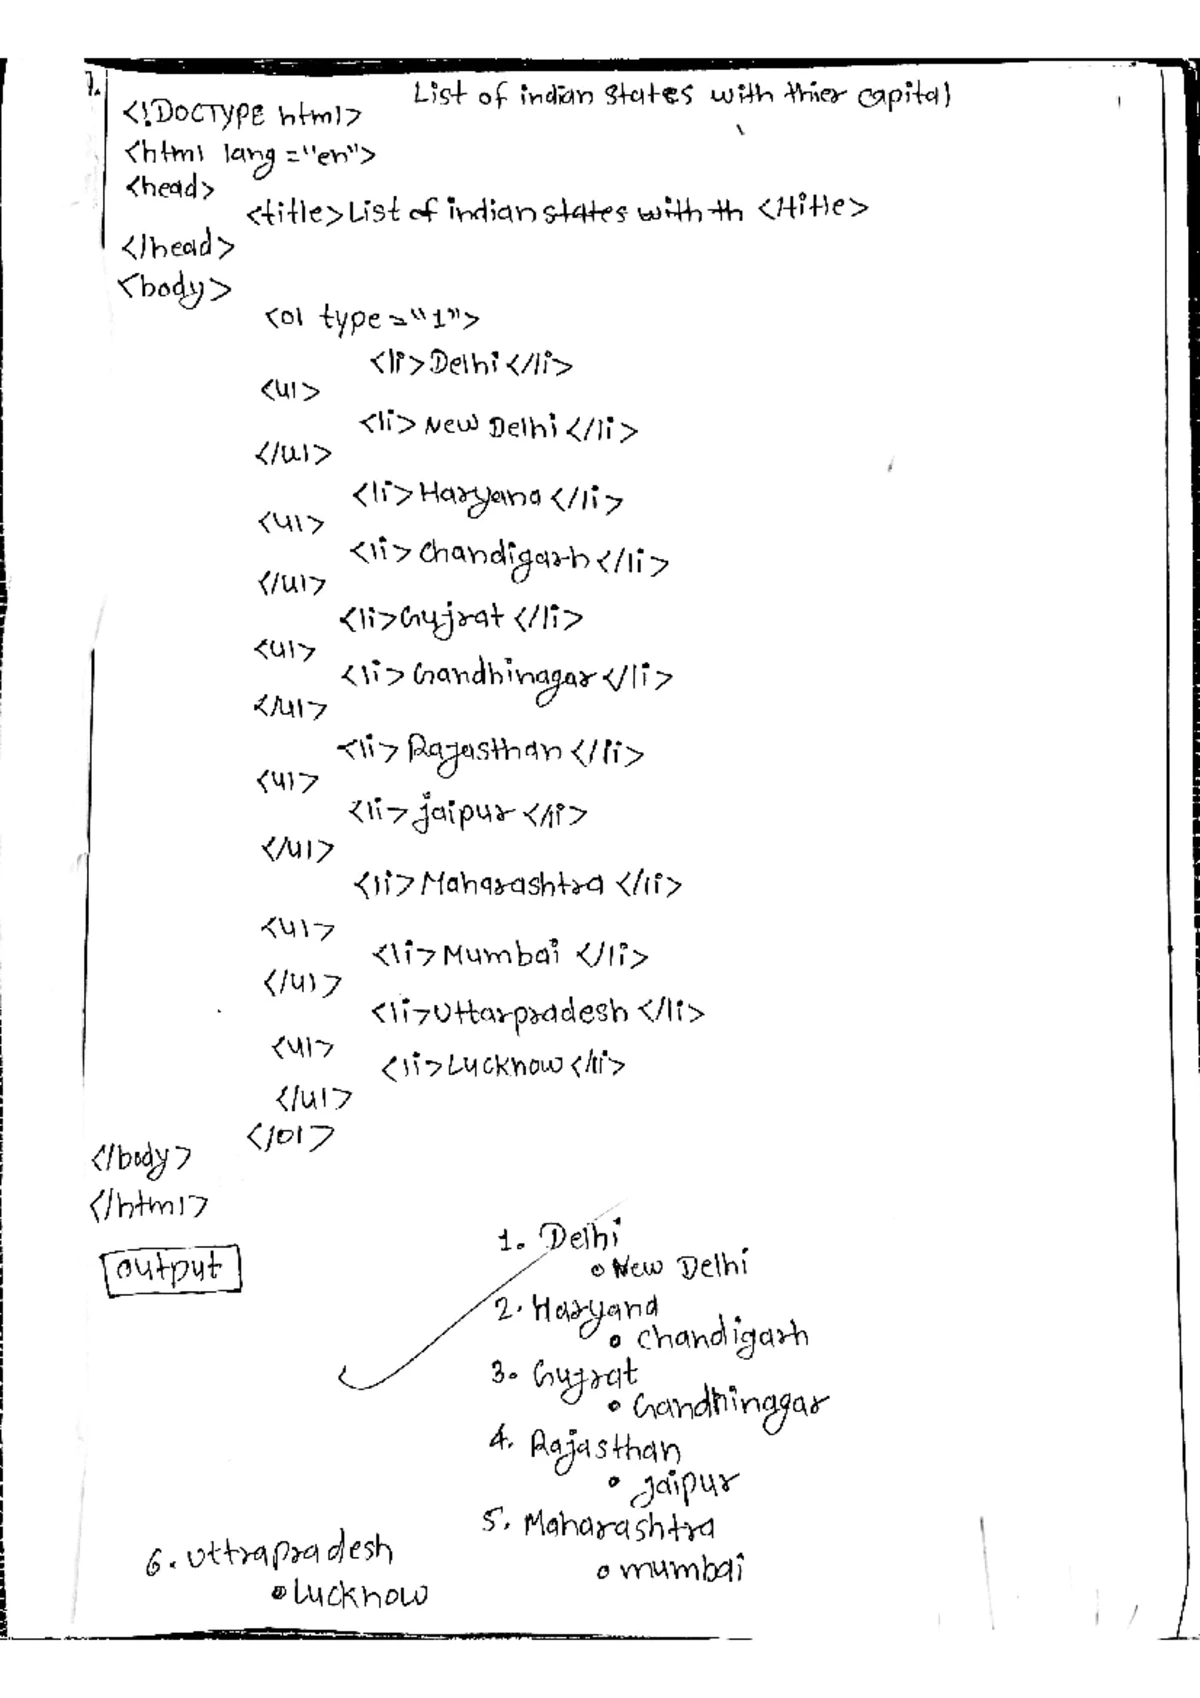 1.
List of indian states with thier capital
<!DOCTYPE html>
<html lang ="en">
<head>
<title>List of indian states with th </title>
</head>
<body>
<ol type="1">
<li>Delhi</li>
<ul>
<li>New Delhi</li>
</ul>
<li>Haryana</li>
<ul>
<li>chandigarh</li>
</ul>
<li>Gujrat</li>
<ul>
<li>Gandhinagar</li>
</ul>
<li>Rajasthan</li>
<ul>
<li>jaipur</li>
</ul>
<li>Maharashtra</li>
<ul>
<li>Mumbai</li>
</ul>
<li>Uttarpradesh</li>
<ul>
<li>Lucknow</li>
</ul>
</ol>
</body>
</html>
output
1. Delhi
New Delhi
2. Haryana
Chandigarh
3. Gujrat
Gandhinagar
4. Rajasthan
jaipur
5. Maharashtra
mumbai
6. Uttrapradesh
Lucknow